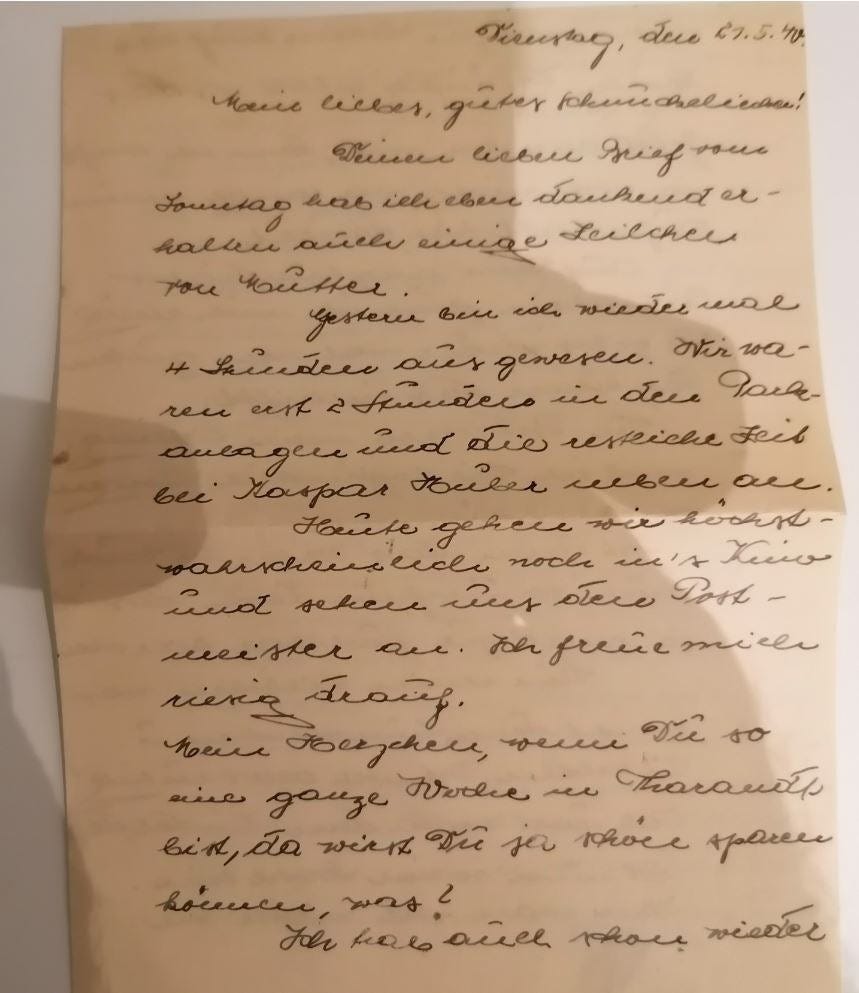 Dienstag, den 21.5.40.
Mein liebes, gutes Schnuckelienchen!
Deinen lieben Brief vom
Sonntag hab ich eben dankend er-
halten auch einige Zeilchen
von Mutter.
Gestern bin ich wieder mal
4 Stunden aus gewesen. Wir wa-
ren erst 2 Stunden in den Park-
anlagen und die restliche Zeit
bei Kaspar Huber neben an.
Heute gehen wir höchst-
wahrscheinlich noch in's Kino
und sehen uns den Post-
meister an. Ich freue mich
riesig drauf.
Mein Herzchen, wenn Du so
eine ganze Woche in Tharandt
bist, da wirst Du ja schön sparen
können, was?
Ich hab auch schon wieder